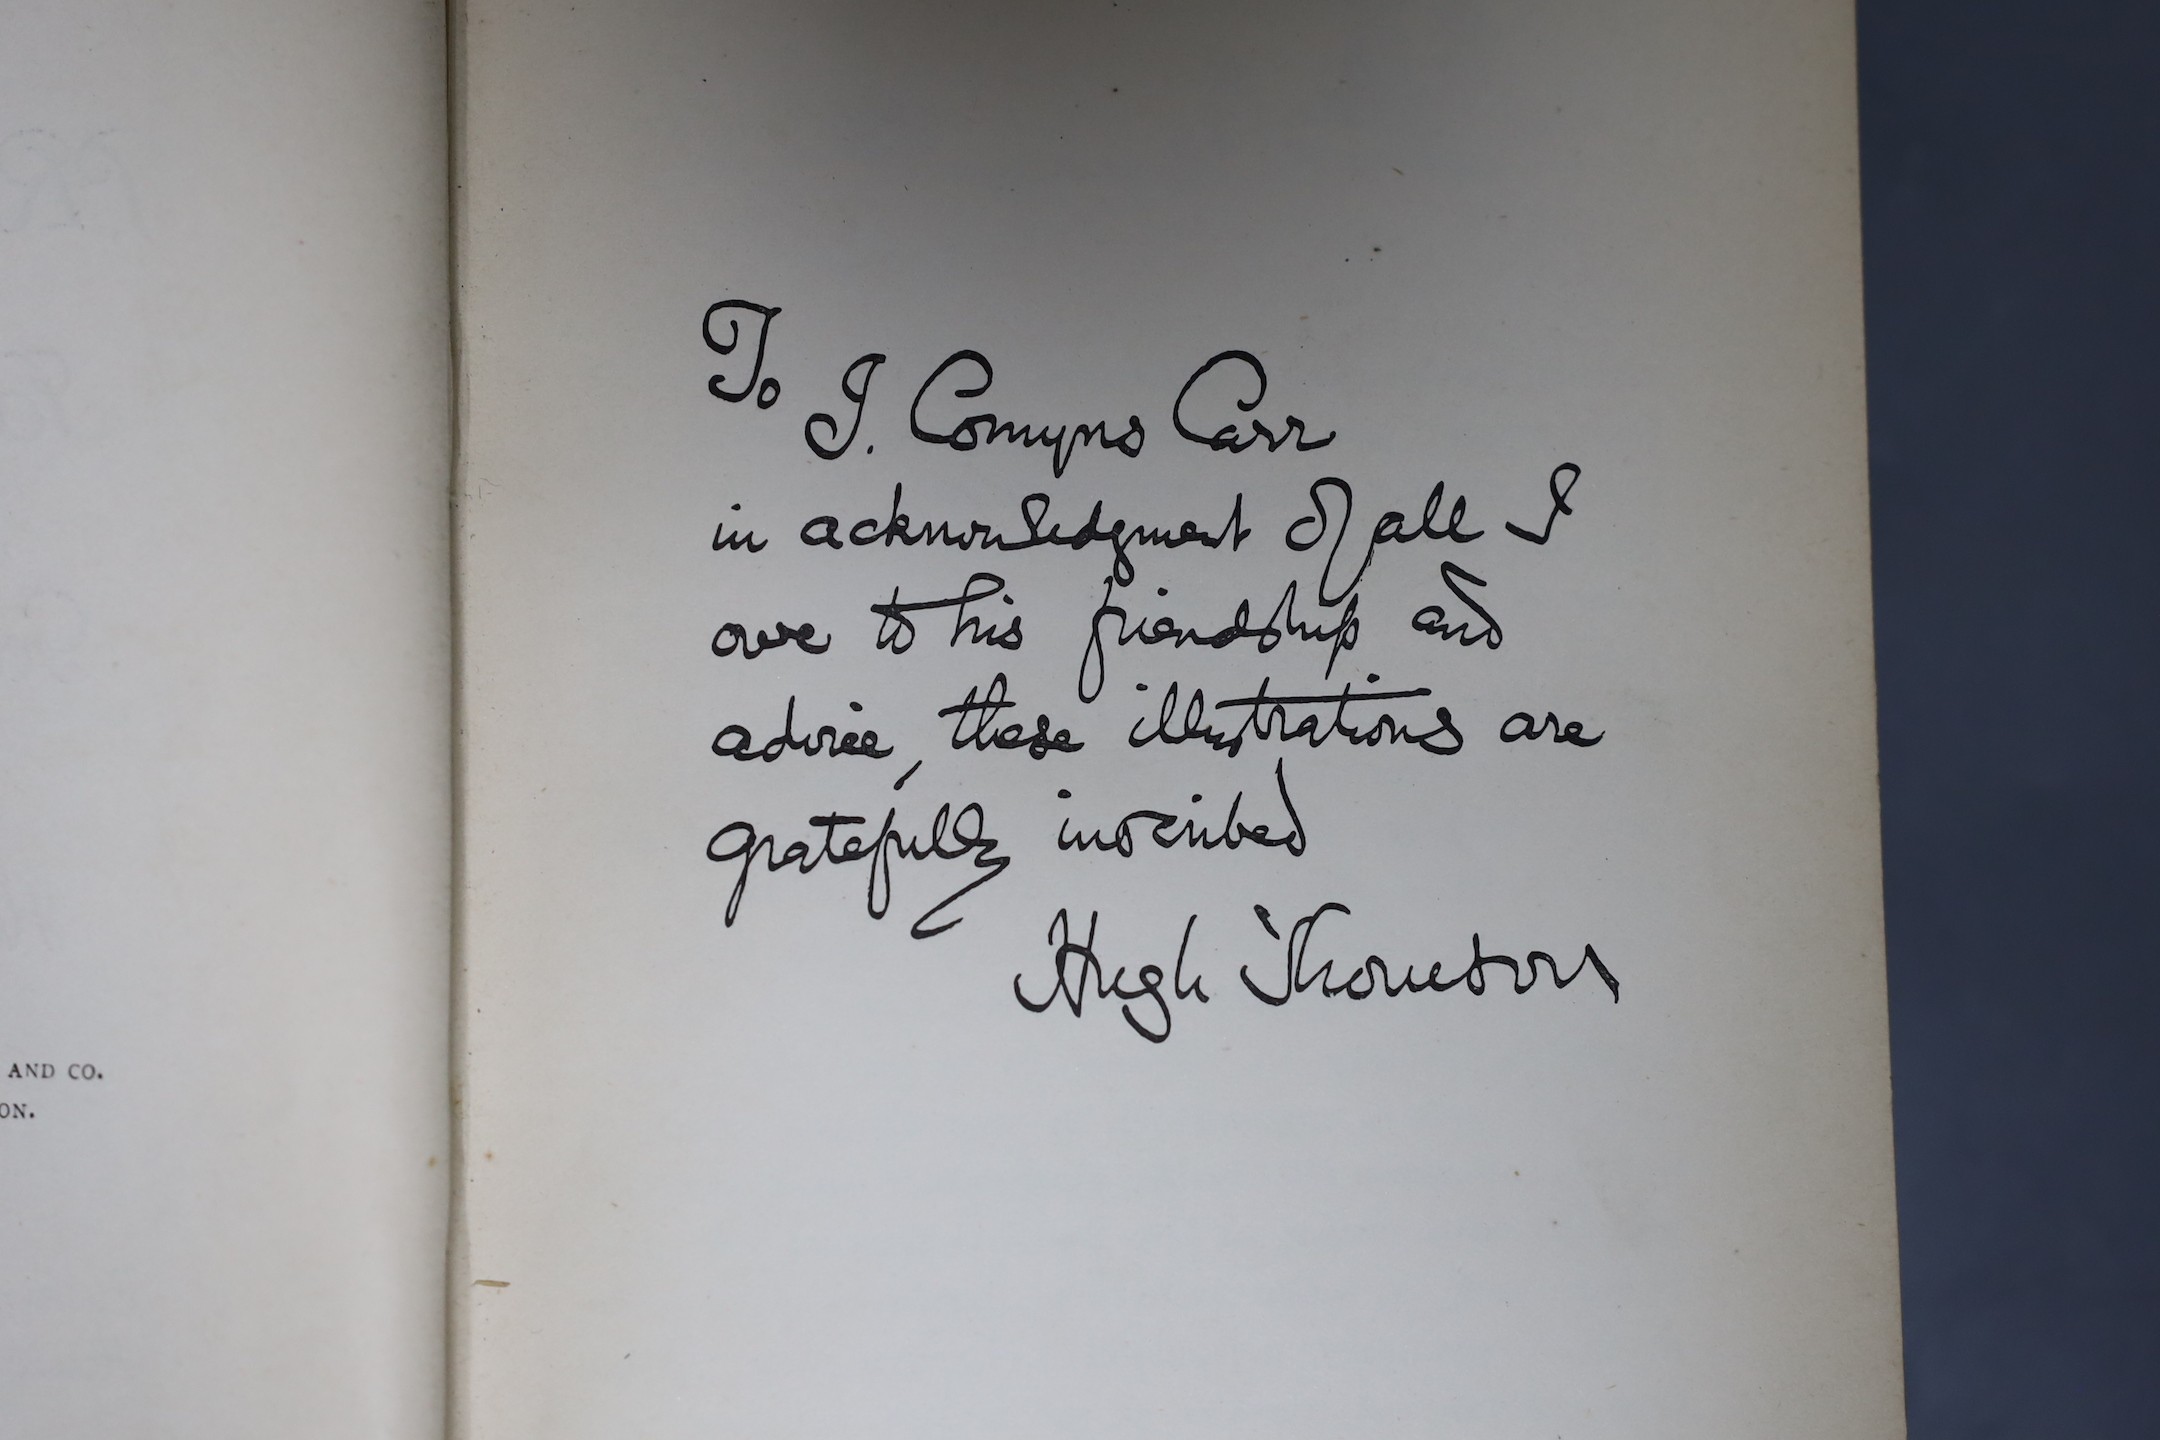 AND CO.
ON.
To
J. Comyns Carr
in acknowledgment of all I
owe to his friendship and
advice, these illustrations are
gratefully inscribed
Hugh Thomson